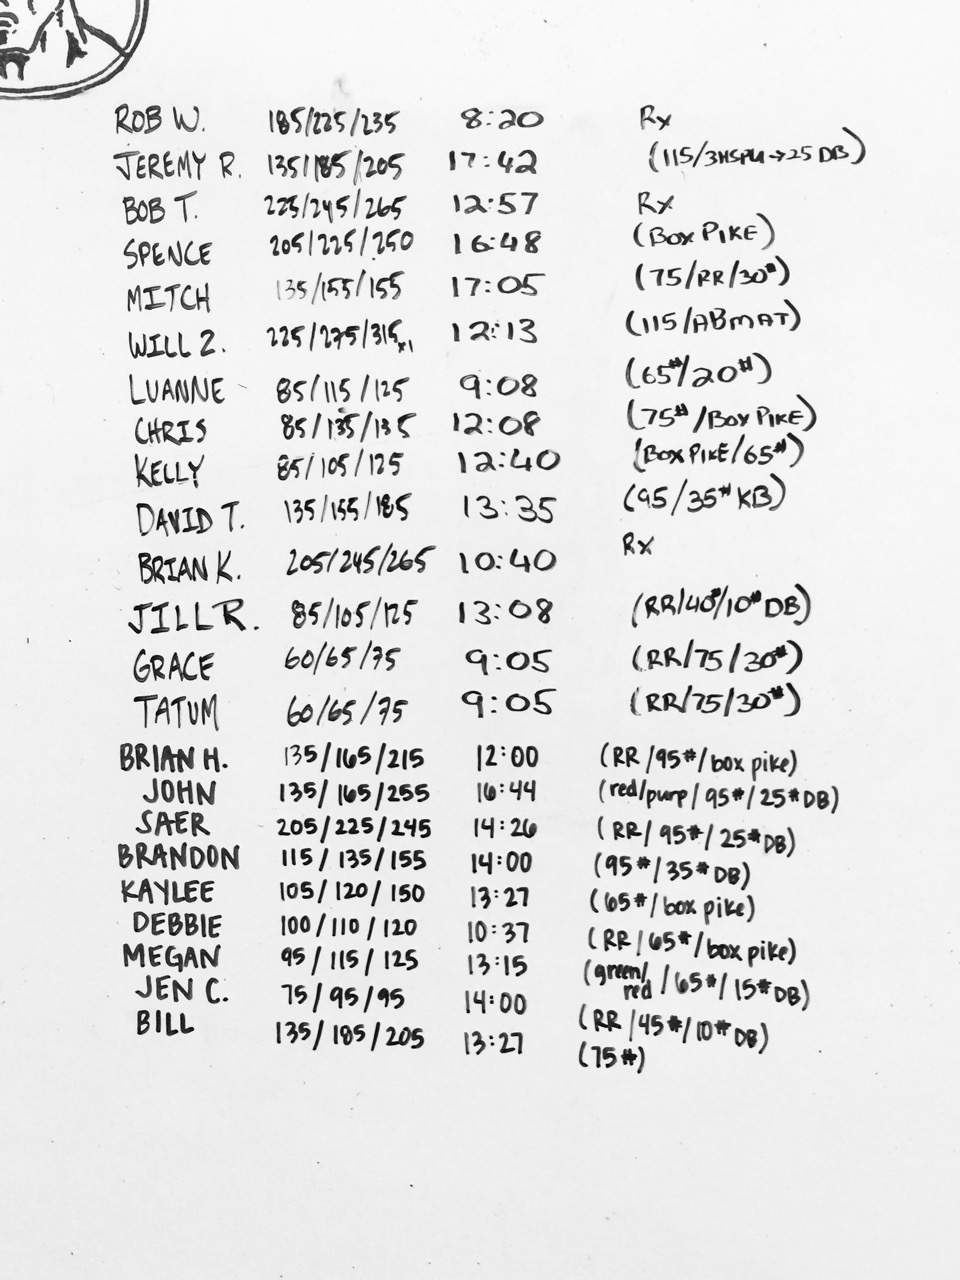 ROB W. 185/225/235 8:20 Rx
JEREMY R. 135/185/205 17:42 (115/3HSPU→25 DB)
BOB T. 225/245/265 12:57 Rx
SPENCE 205/225/250 16:48 (BOX PIKE)
MITCH 135/155/155 17:05 (75/RR/30#)
WILL Z. 225/275/315x1 12:13 (115/ABMAT)
LUANNE 85/115/125 9:08 (65#/20#)
CHRIS 85/135/135 12:08 (75#/BOX PIKE)
KELLY 85/105/125 12:40 (BOX PIKE/65#)
DAVID T. 135/155/185 13:35 (95/35# KB)
BRIAN K. 205/245/265 10:40 Rx
JILL R. 85/105/125 13:08 (RR/40#/10# DB)
GRACE 60/65/75 9:05 (RR/75/30#)
TATUM 60/65/75 9:05 (RR/75/30#)
BRIAN H. 135/165/215 12:00 (RR/95#/box pike)
JOHN 135/165/255 16:44 (red/purp/95#/25# DB)
SAER 205/225/245 14:26 (RR/95#/25# DB)
BRANDON 115/135/155 14:00 (95#/35# DB)
KAYLEE 105/120/150 13:27 (65#/box pike)
DEBBIE 100/110/120 10:37 (RR/65#/box pike)
MEGAN 95/115/125 13:15 (green/red/65#/15# DB)
JEN C. 75/95/95 14:00 (RR/45#/10# DB)
BILL 135/185/205 13:27 (75#)